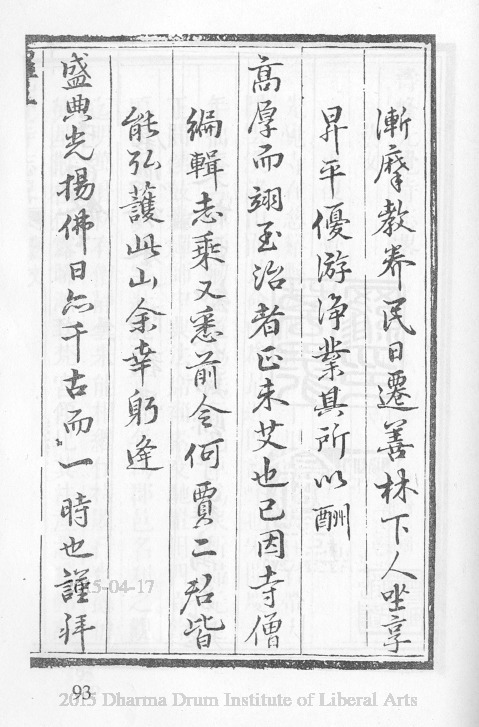 漸摩教养民日遷善林下人坐享
昇平優游净業其所以酬
高厚而翊至治者正未艾也已因寺僧
编輯志乘又悉前令何賈二君皆
能弘護此山余幸躬逢
盛典光揚佛日亦千古而一時也謹拜
93
2015 Dharma Drum Institute of Liberal Arts
5-04-17